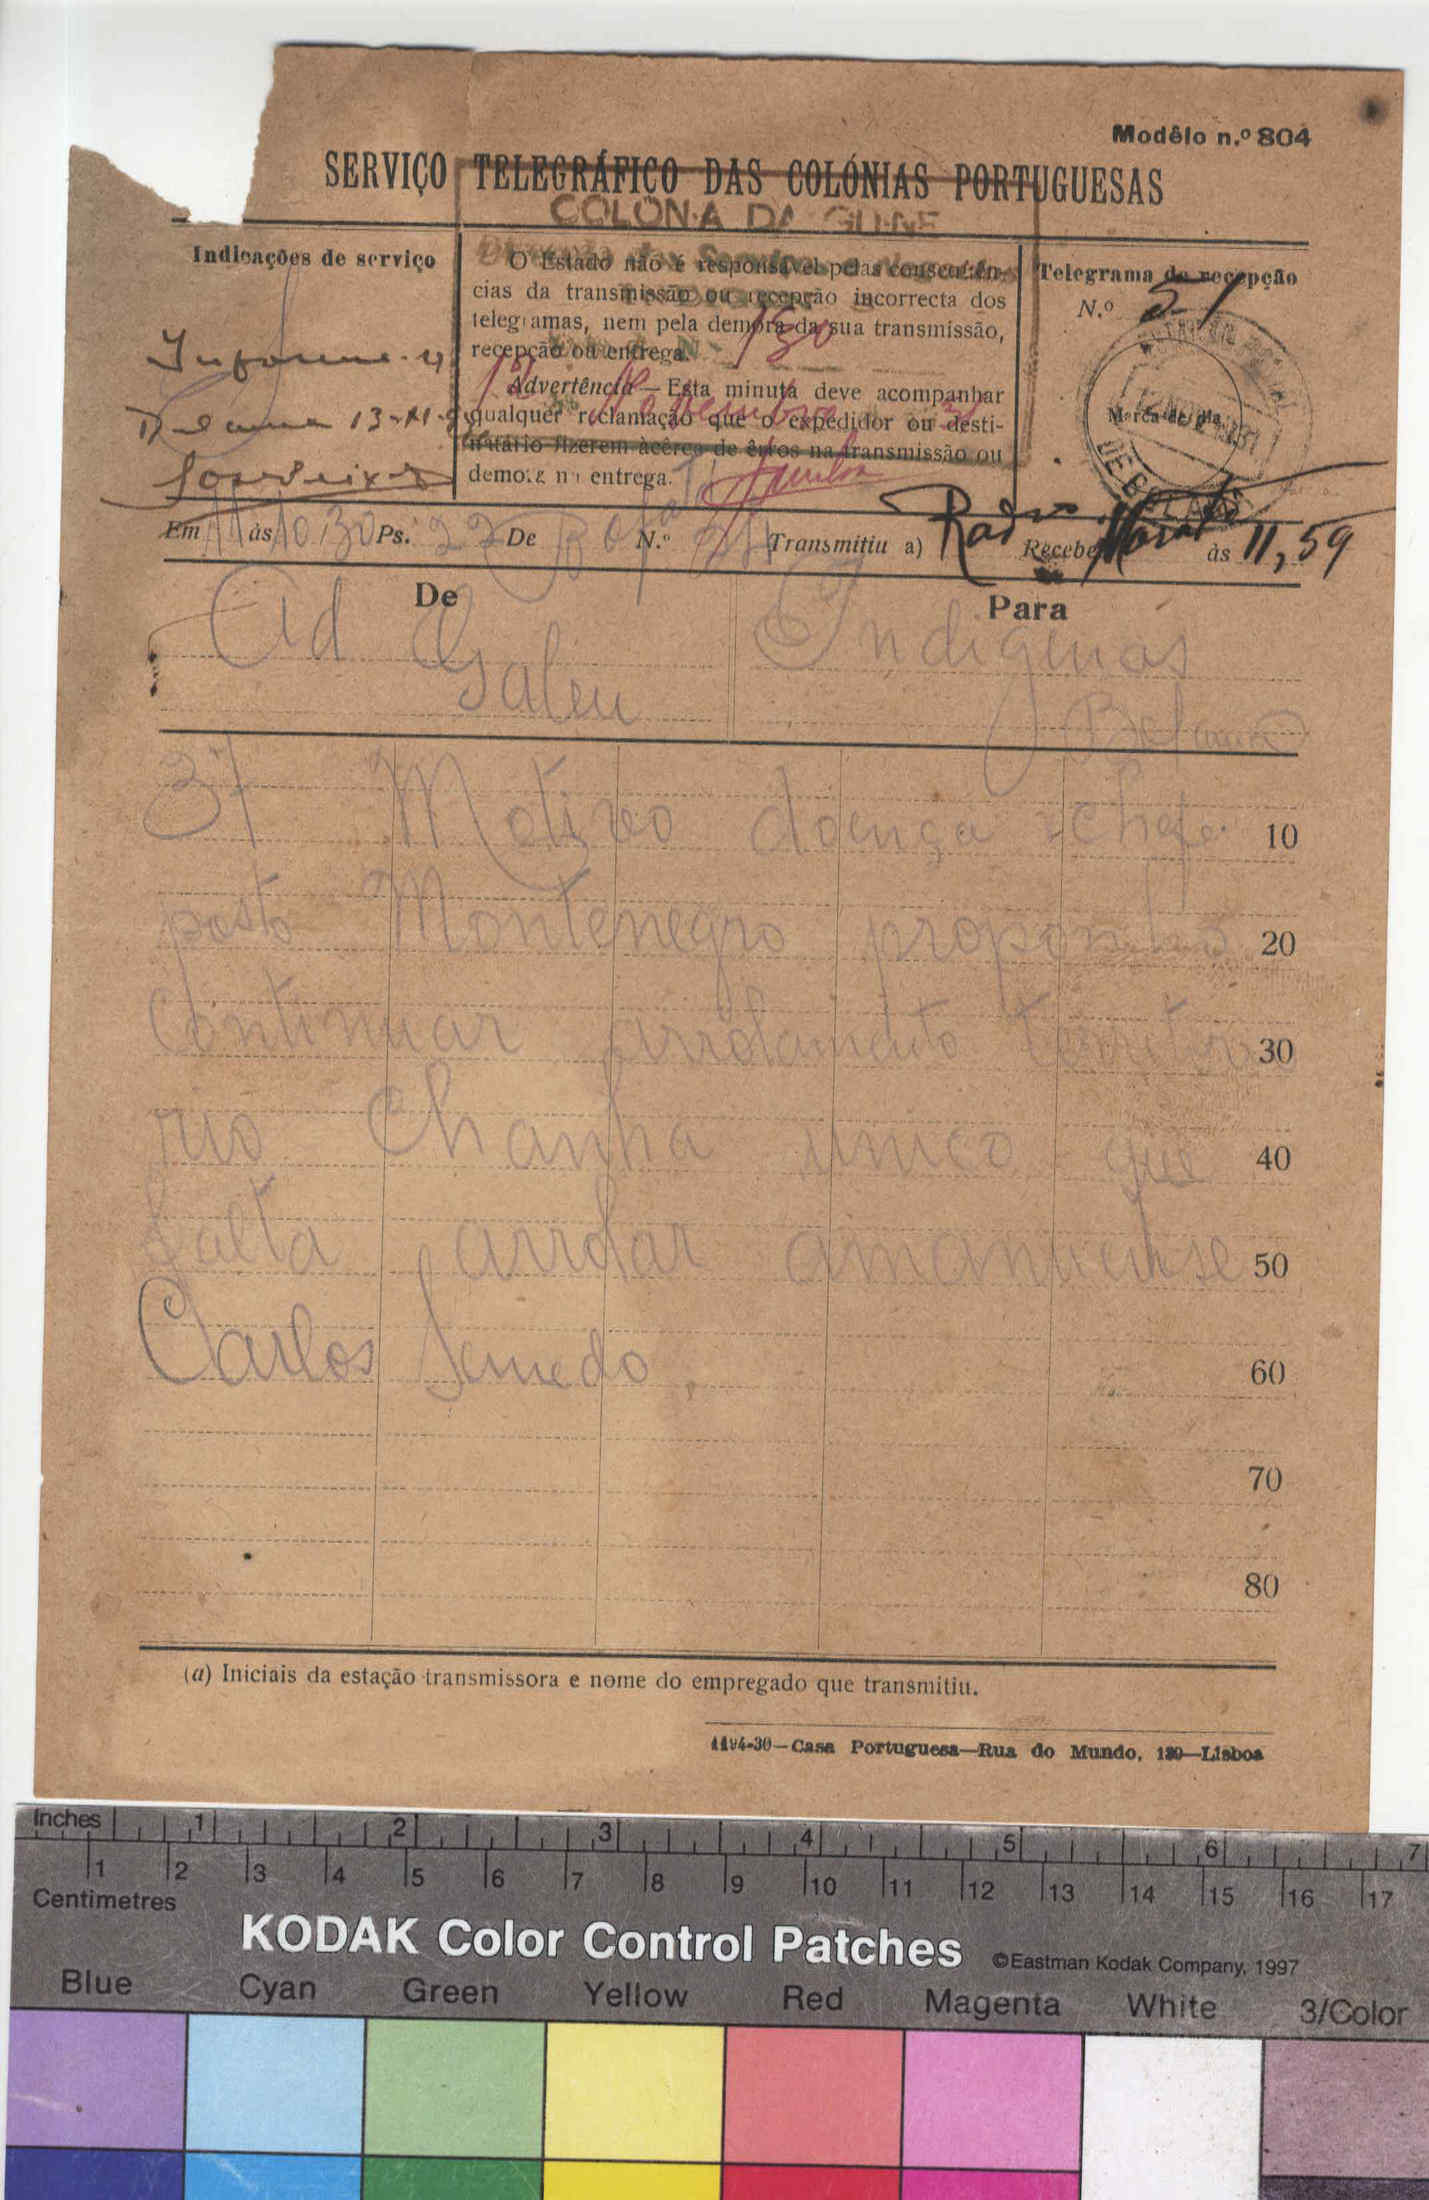 Modêlo n.º 804
SERVIÇO TELEGRÁFICO DAS COLÓNIAS PORTUGUESAS
COLONIA DA GUINE
Indicações de serviço
Informe-se
13-11-
O Estado não é responsável pelas consequên-
cias da transmissão ou recepção incorrecta dos
telegramas, nem pela demora da sua transmissão,
recepção ou entrega.
Advertência — Esta minuta deve acompanhar
qualquer reclamação que o expedidor ou desti-
natário fizerem àcêrca de êrros na transmissão ou
demora na entrega.
130
12 Novembro 31
Telegrama de recepção
N.º 21
Marca do dia
BOLAMA
Em 11 às 10,30 Ps. 22 De Bafatá N.º Transmitiu a) Rad Recebeu às 11,59
De
Para
Ad Indigenas
Gabu Bolama
37 Motivo doença chefe 10
posto Montenegro proponho 20
Continuar arrolamento territo 30
rio Chanha unico que 40
falta arrolar amanuense 50
Carlos Semedo. 60
70
80
(a) Iniciais da estação transmissora e nome do empregado que transmitiu.
1194-30—Casa Portuguesa—Rua do Mundo, 139—Lisboa
Inches 1 2 3 4 5 6 7
1 2 3 4 5 6 7 8 9 10 11 12 13 14 15 16 17
Centimetres
KODAK Color Control Patches ©Eastman Kodak Company, 1997
Blue Cyan Green Yellow Red Magenta White 3/Color